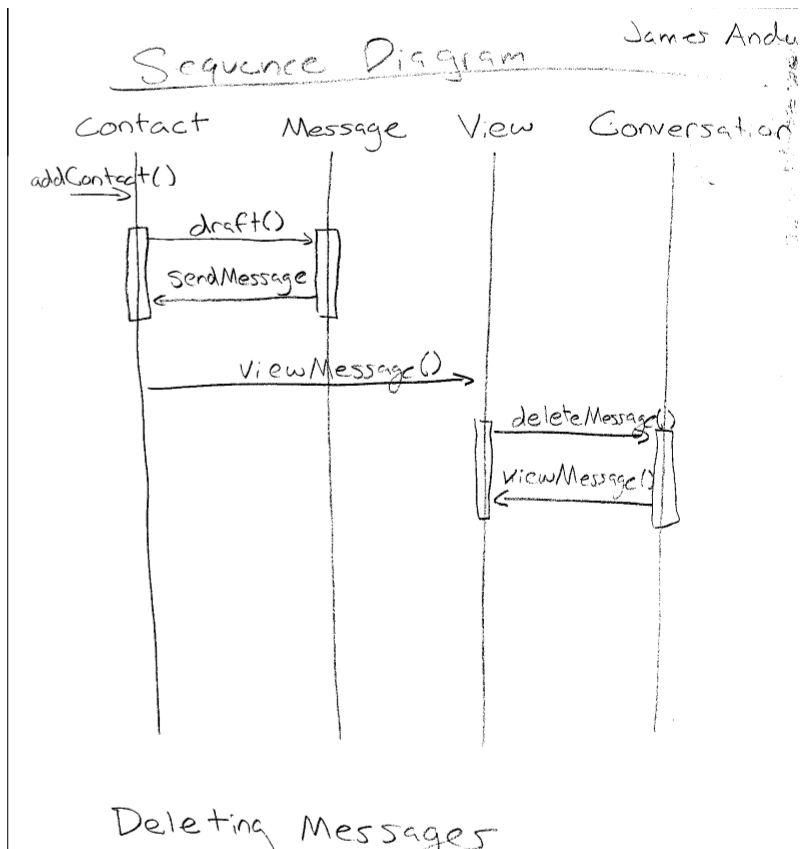 James
Sequence Diagram
Contact Message View Conversation
addContact()
draft()
sendMessage
viewMessage()
deleteMessage()
viewMessage()
Deleting Messages